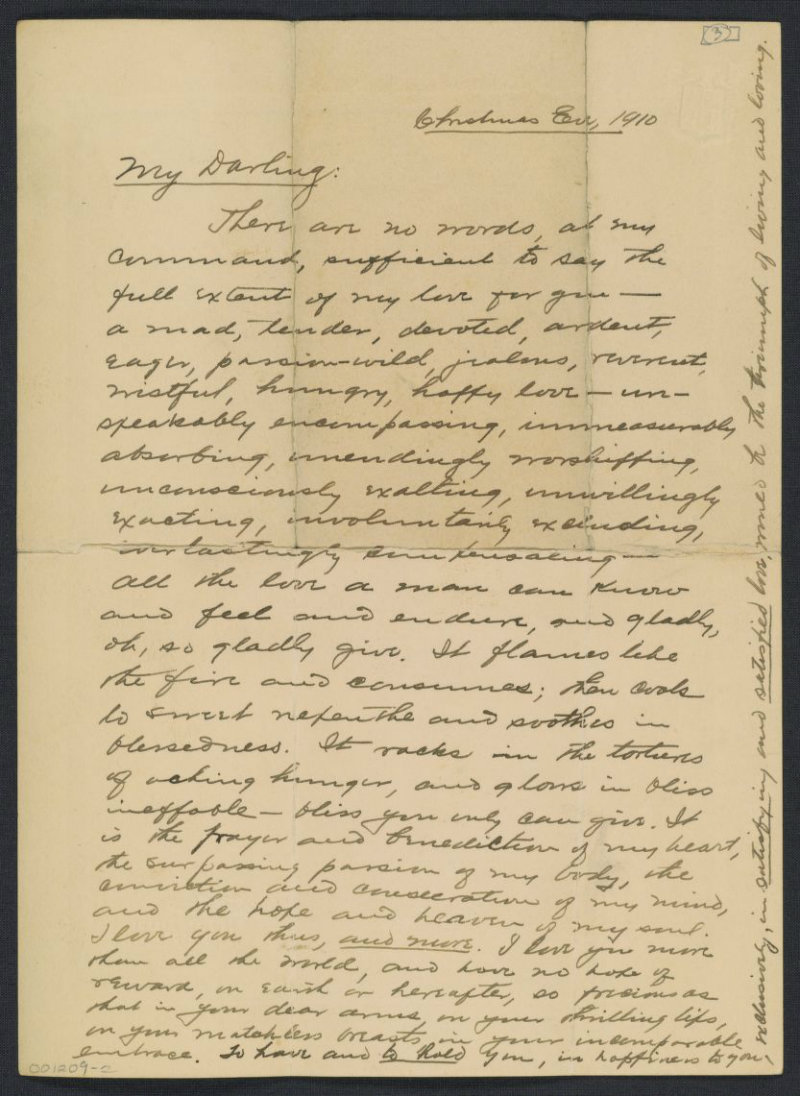 (3)
Christmas Eve, 1910
My Darling:
There are no words, at my
command, sufficient to say the
full extent of my love for you —
a mad, tender, devoted, ardent,
eager, passion-wild, jealous, reverent,
wistful, hungry, happy love — un-
speakably encompassing, immeasurably
absorbing, unendingly worshipping,
unconsciously exalting, unwillingly
exacting, involuntarily excluding,
everlastingly compensating —
all the love a man can know
and feel and endure, and gladly,
oh, so gladly give. It flames like
the fire and consumes; then cools
to sweet nepenthe and soothes in
blessedness. It racks in the tortures
of aching hunger, and glows in bliss
ineffable — bliss you only can give. It
is the prayer and benediction of my heart,
the surpassing passion of my body, the
conviction and consecration of my mind,
and the hope and heaven of my soul.
I love you thus, and more. I love you more
than all the world, and have no hope of
reward, on earth or hereafter, so precious as
that in your dear arms, on your thrilling lips,
on your matchless breasts in your incomparable
embrace. To have and to hold you, in happiness to you,
exclusively, in satisfying and satisfied love, would be the triumph of living and loving.
001209-2